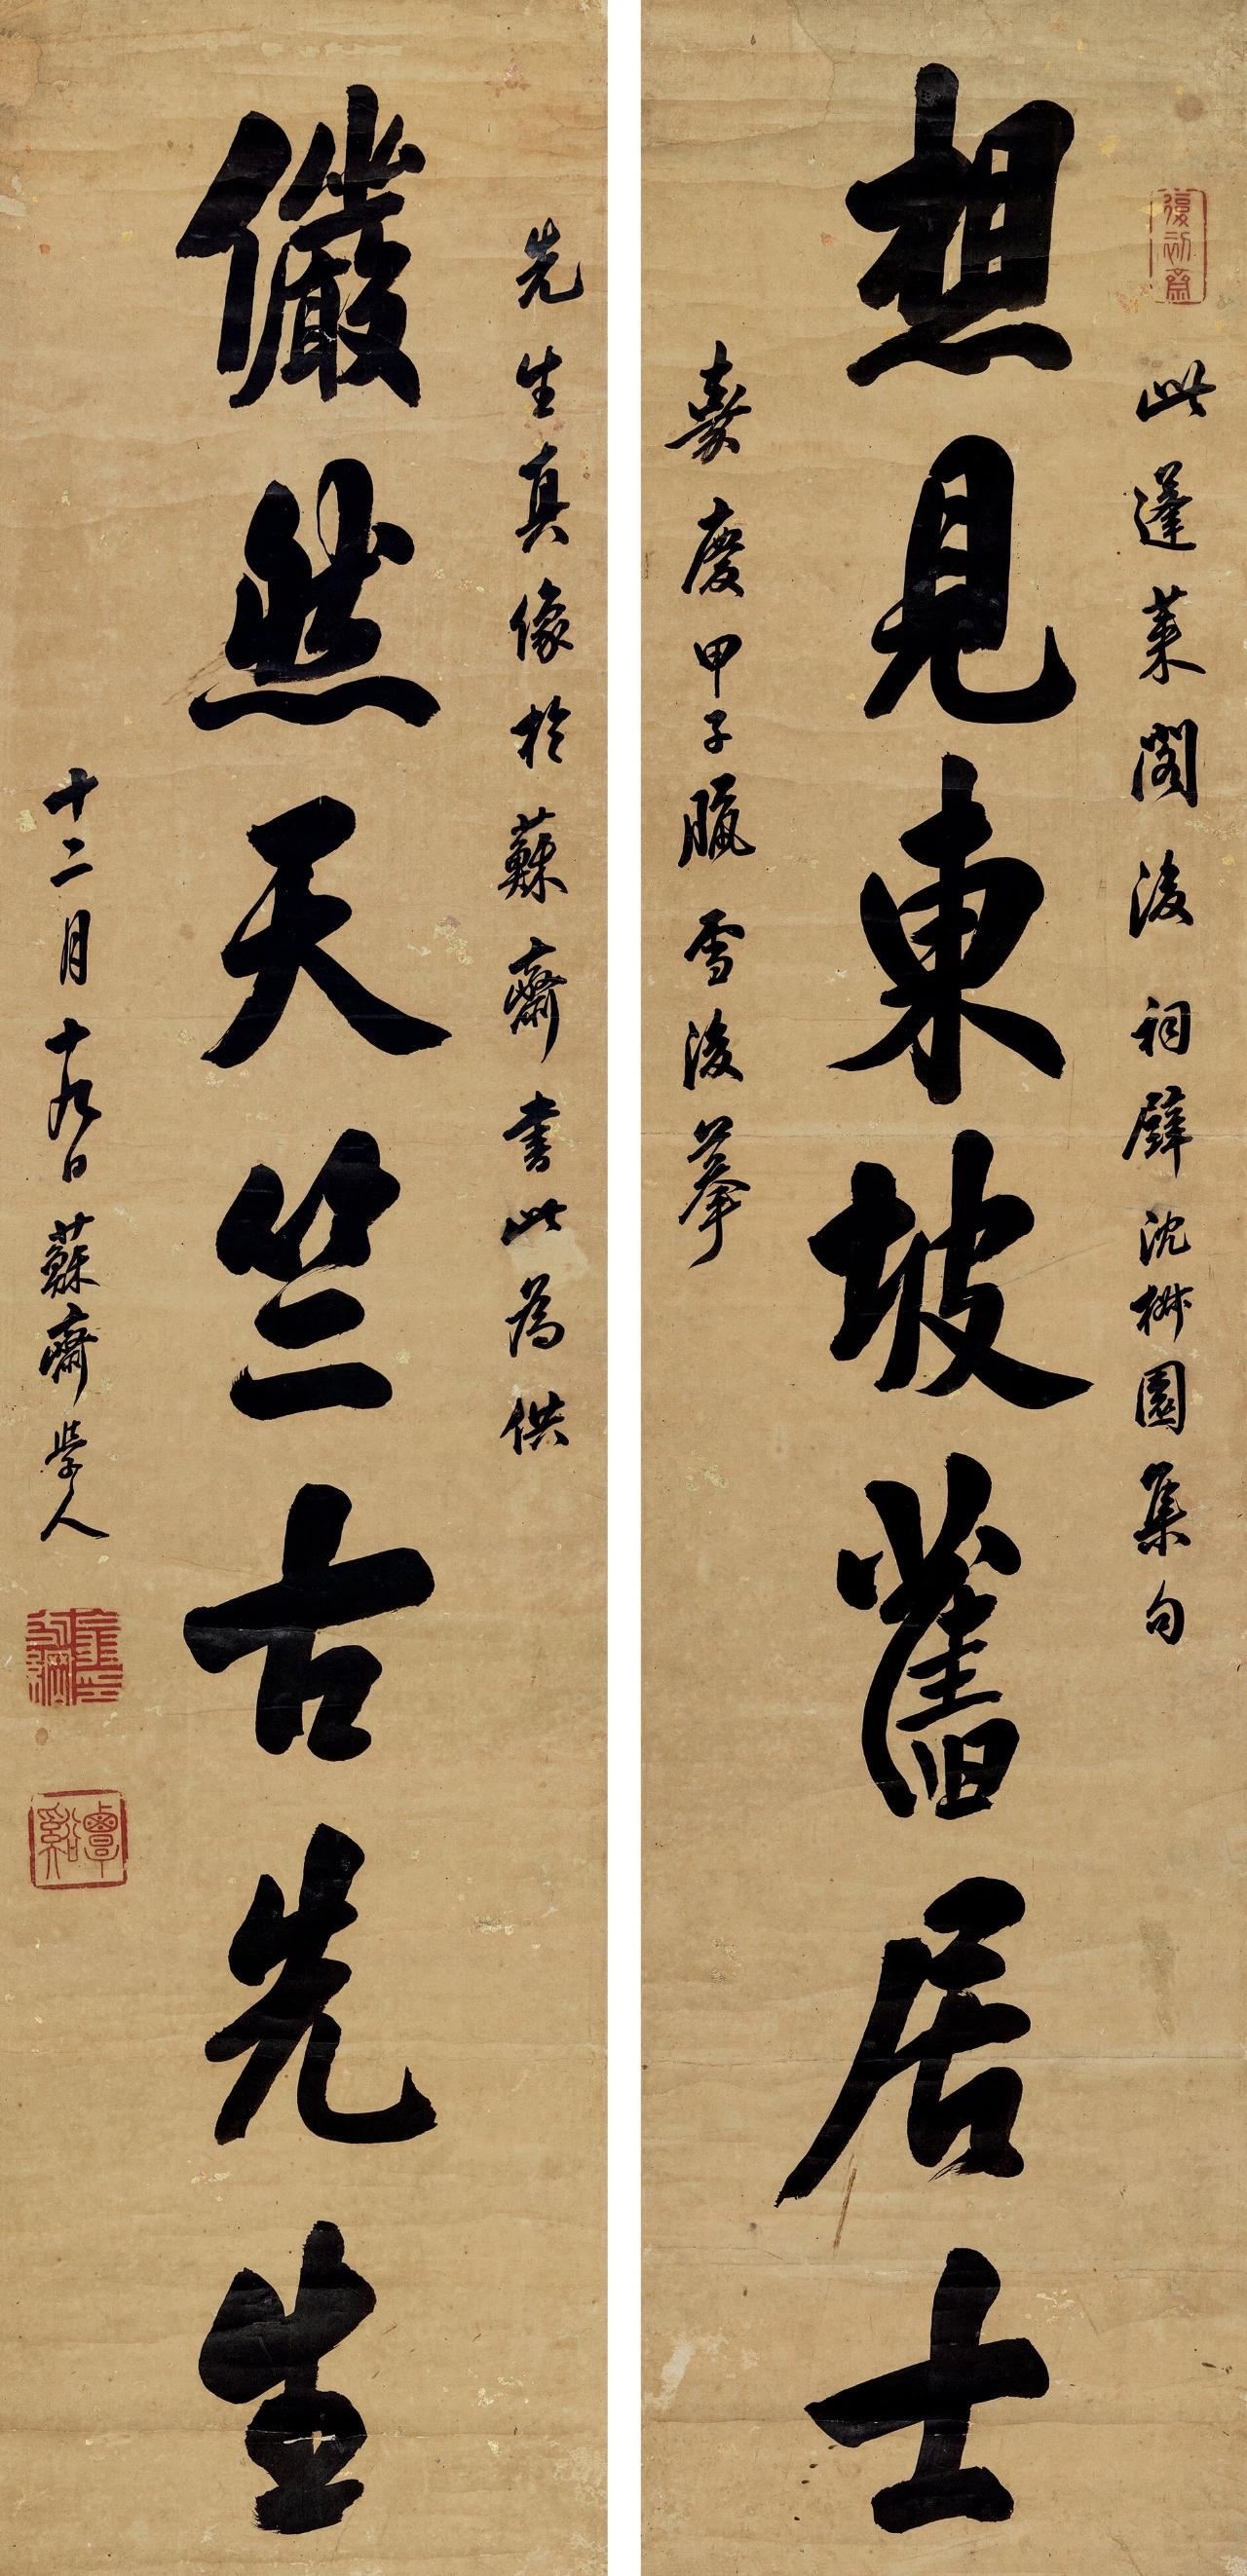 復初齋
此蓬萊閣後祠壁沈椒園集句
想見東坡舊居士
嘉慶甲子臘雪後摹
先生真像於蘇齋書此為供
儼然天竺古先生
十二月十九日蘇齋學人
翁方綱印
覃谿